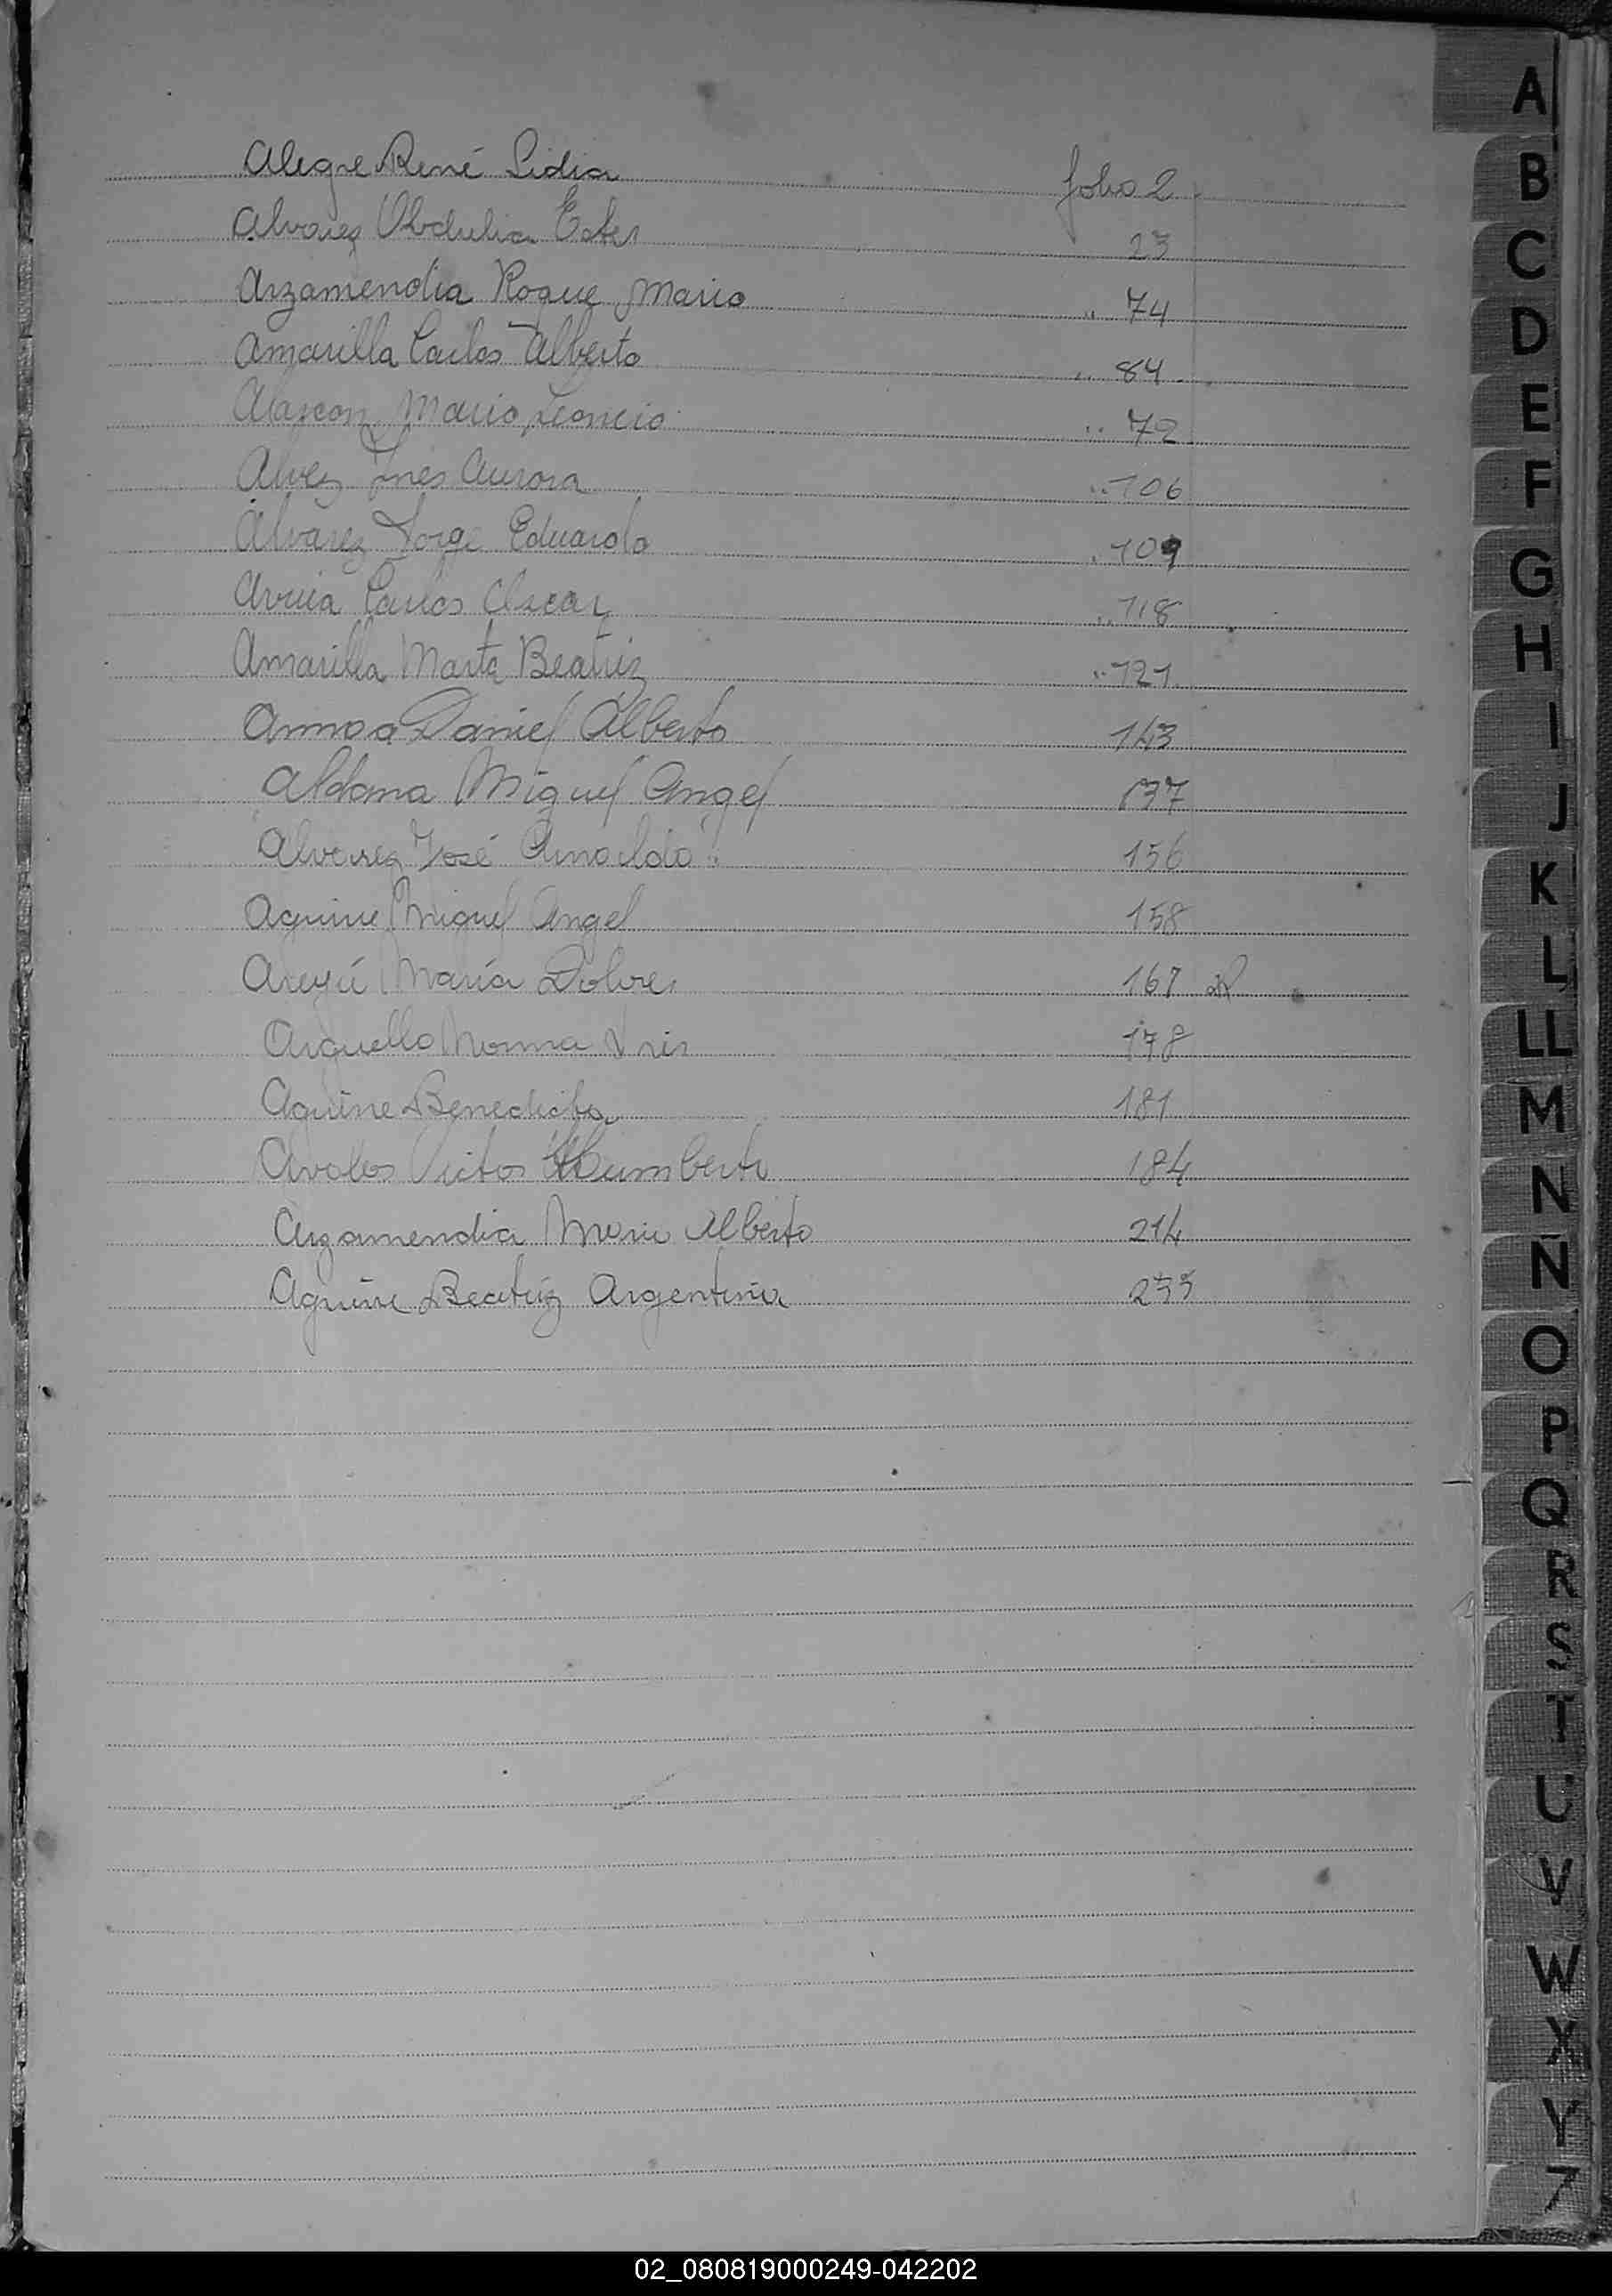 Alegre René Lidia folio 2
Alvarez Obdulia Ester 23
Arzamendia Roque Mario " 74
Amarilla Carlos Alberto " 84
Alarcon Mario Leoncio " 72
Alvez Ines Aurora " 106
Alvarez Jorge Eduardo " 109
Carlos Oscar " 118
Amarilla Marta Beatriz " 121
Daniel Alberto 143
Aldana Miguel Angel 137
Alvarez José Arnaldo 156
Aguirre Miguel Angel 158
María Dolores 167
Arguello Norma Iris 178
Aguirre Benedicta 181
Avalos Victor Humberto 184
Arzamendia Mario Alberto 214
Aguirre Beatriz Argentina 235
A
B
C
D
E
F
G
H
I
J
K
L
LL
M
N
N
O
P
Q
R
S
T
U
V
W
X
Y
Z
02_080819000249-042202